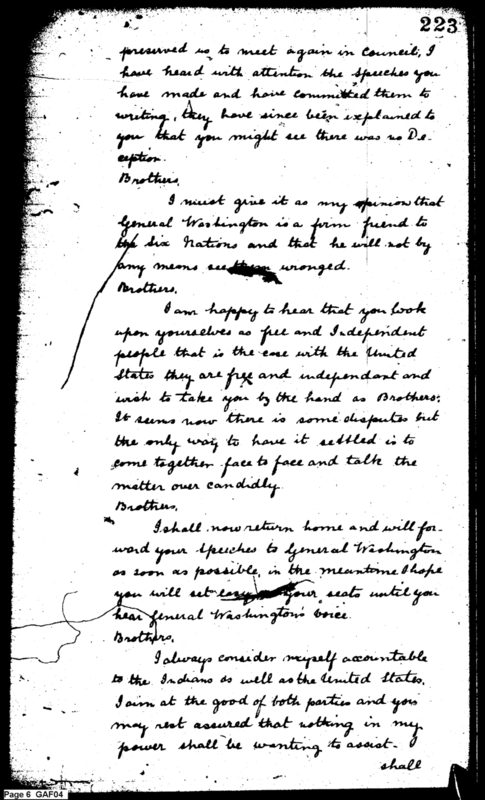 223
preserved us to meet again in Council, I
have heard with attention the speeches you
have made and have committed them to
writing, they have since been explained to
you that you might see there was no De-
ception.
Brothers,
I must give it as my opinion that
General Washington is a firm friend to
the Six Nations and that he will not by
any means see them wronged.
Brothers,
I am happy to hear that you look
upon yourselves as free and Independent
people that is the case with the United
States they are free and independant and
wish to take you by the hand as Brothers;
It seems now there is some disputes but
the only way to have it settled is to
come together face to face and talk the
matter over candidly
Brothers,
I shall now return home and will for-
ward your speeches to General Washington
as soon as possible, in the meantime I hope
you will set easy your seats until you
hear General Washington's voice.
Brothers,
I always consider myself accountable
to the Indians as well as the United States.
I aim at the good of both parties and you
may rest assured that nothing in my
power shall be wanting to assist- I
shall
Page 6 GAF04